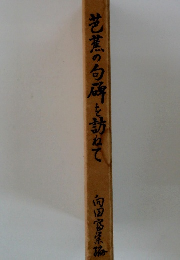 芭蕉の句碑を訪ねて
向田